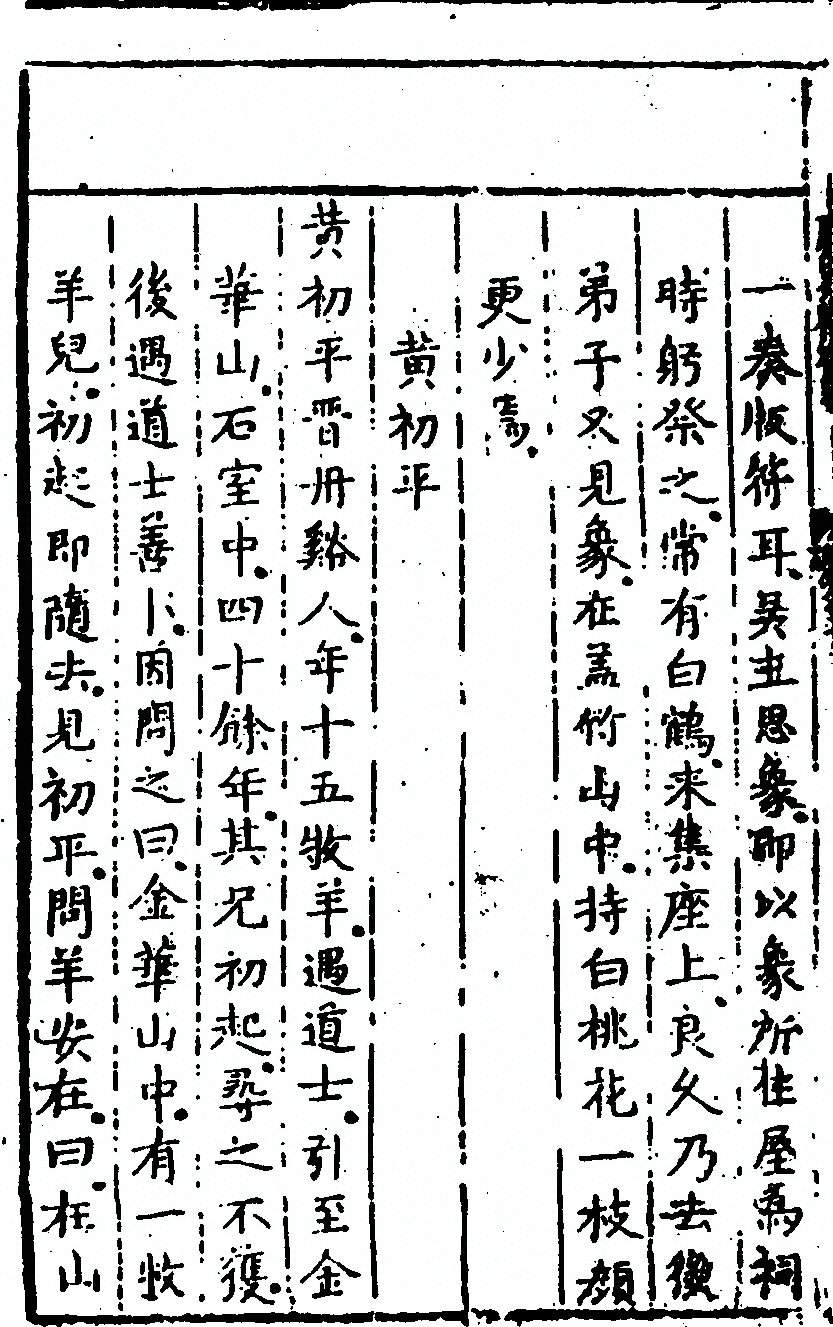 一奏版符耳吳主思象即以象所住屋為祠
時躬祭之常有白鶴来集座上良久乃去後
弟子又見象在蓋竹山中持白桃花一枝顏
更少焉
黄初平
黄初平晉丹谿人年十五牧羊遇道士引至金
華山石室中四十餘年其兄初起尋之不獲
後遇道士善卜因問之曰金華山中有一牧
羊兒初起即隨去見初平問羊安在曰在山